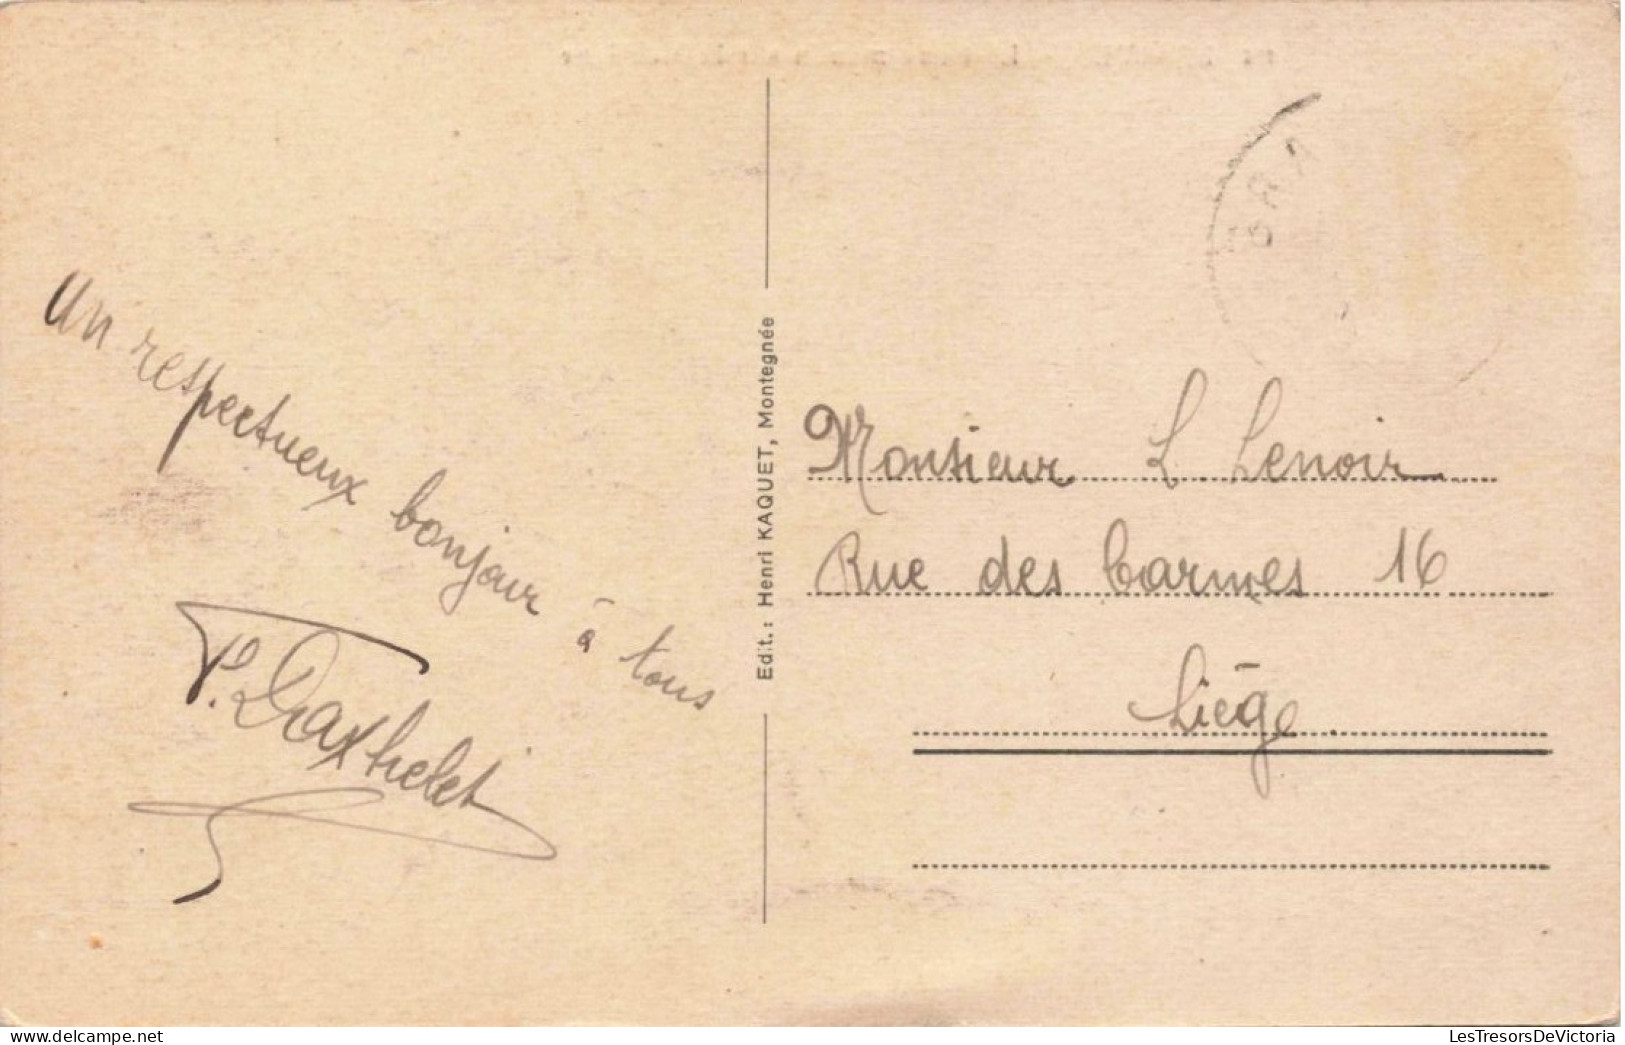 Un respectueux bonjour à tous
P. Daxhelet
Edit. : Henri KAQUET, Montegnée
BRA
Monsieur L. Lenoir
Rue des Carmes 16
Liège.
LesTresorsDeVictoria